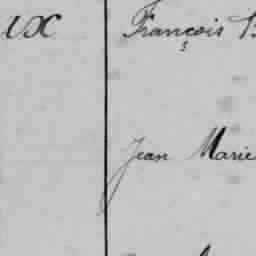 ux François
Jean Marie